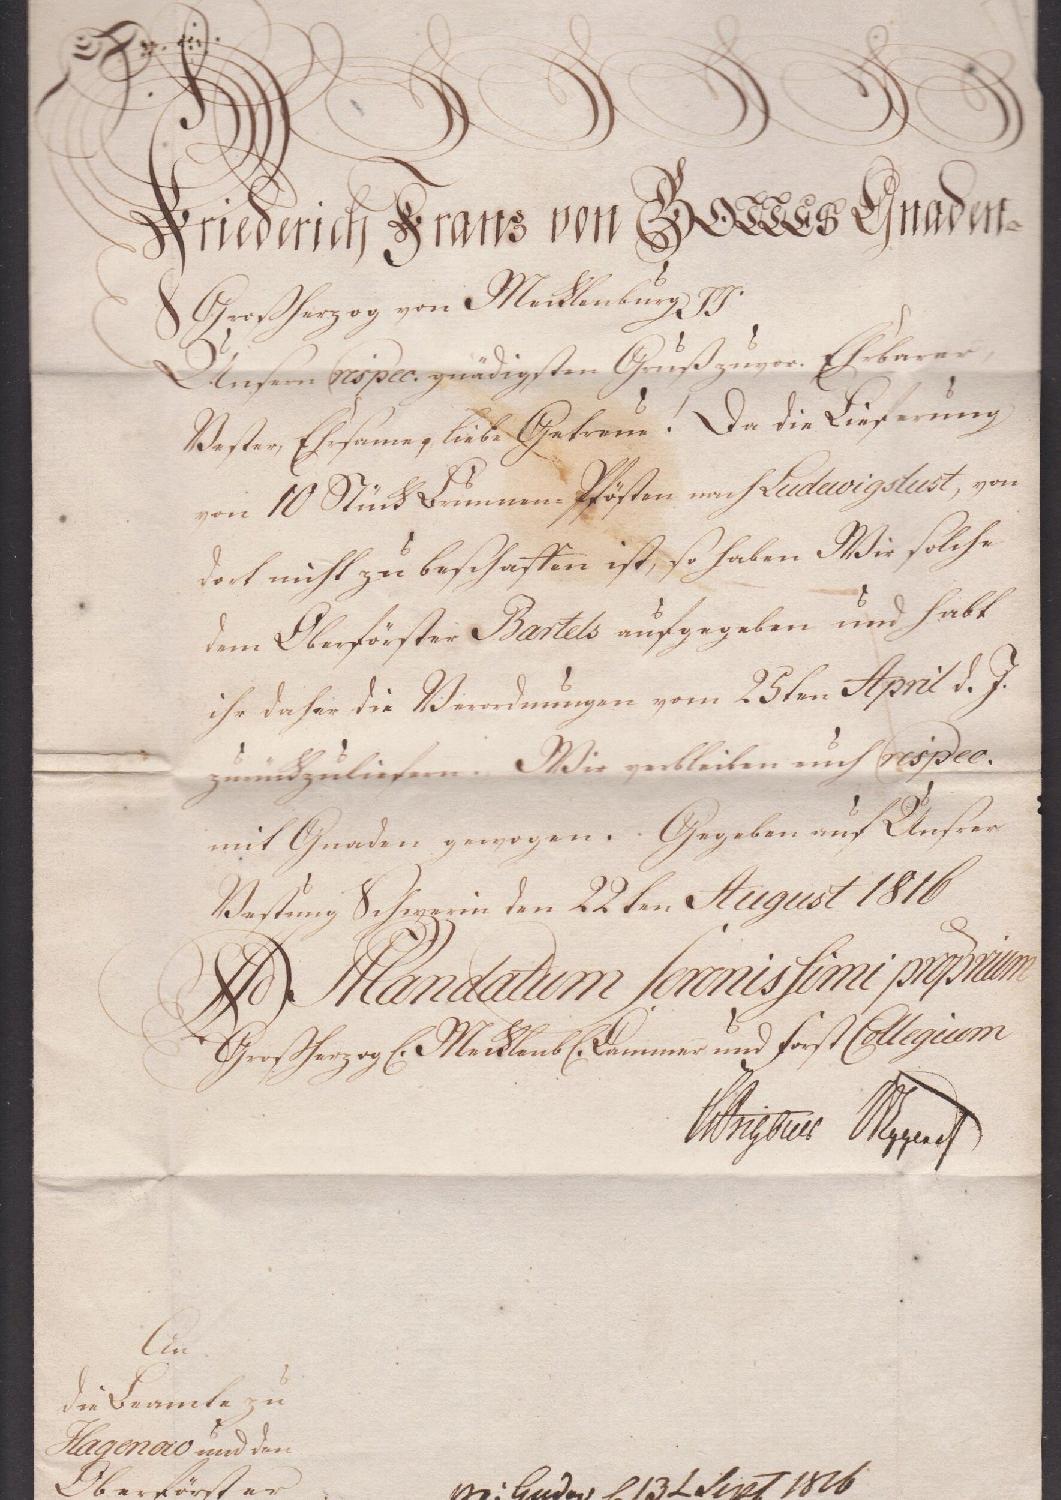 Friederich Franz von GOTTES Gnaden
Großherzog von Mecklenburg pp.
Unsern respec. gnädigsten Gruß zuvor. Ehrbarer,
Vester, Ehrsame, liebe Getreue! Da die Lieferung
von 10 Stück Brunnen-Pfösten nach Ludewigslust, von
dort nicht zu beschaffen ist, so haben Wir solche
dem Oberförster Bartels aufgegeben und habt
ihr daher die Verordnungen vom 25sten April d. J.
zurückzuliefern. Wir verbleiben euch respec.
mit Gnaden gewogen. Gegeben auf Unsrer
Vestung Schwerin den 22sten August 1816
Ad Mandatum serenissimi proprium
Großherzogl. Mecklenb. Cammer und Forst Collegium
An
die Beamte zu
Hagenow und den
Oberförster
13t Sept 1816